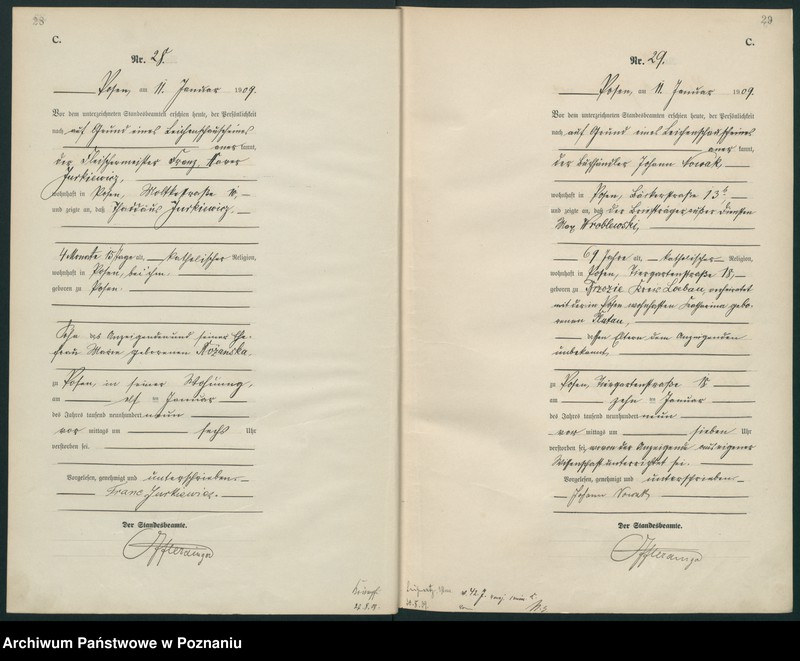 28
C.
Nr. 28.
Posen, am 11. Januar 1909.
Vor dem unterzeichneten Standesbeamten erschien heute, der Persönlichkeit
nach auf Grund eines Leichenschauscheines
aner kannt,
der Fleischermeister Franz Xaver
Jurkiewicz,
wohnhaft in Posen, Moltkestraße
und zeigte an, daß Thaddäus Jurkiewicz,
4 Monate Tage alt, katholischer Religion,
wohnhaft in Posen, bei ihm
geboren zu Posen.
Sohn des Anzeigenden und seiner Ehe-
frau Marie geborenen Różańska.
zu Posen, in seiner Wohnung,
am elf ten Januar
des Jahres tausend neunhundert neun
vor mittags um sechs Uhr
verstorben sei.
Vorgelesen, genehmigt und unterschrieben
Franz Jurkiewicz.
Der Standesbeamte.
27.8.
29
C.
Nr. 29.
Posen, am 11. Januar 1909.
Vor dem unterzeichneten Standesbeamten erschien heute, der Persönlichkeit
nach auf Grund eines Leichenschauscheines
aner kannt,
der Johann Nowak,
wohnhaft in Posen, Bäckerstraße 13
und zeigte an, daß der Briefträger außer Diensten
Max Wroblewski,
69 Jahre alt, katholischer Religion,
wohnhaft in Posen, Tiergartenstraße 18,
geboren zu Trzozie Kreis Loebau, verheiratet
mit der in Posen wohnhaften Katharina gebo-
renen Flatau,
dessen Eltern dem Anzeigenden
unbekannt,
zu Posen, Tiergartenstraße 18
am zehn ten Januar
des Jahres tausend neunhundert neun
vor mittags um sieben Uhr
verstorben sei, wovon der Anzeigende aus eigener
Wissenschaft unterrichtet sei.
Vorgelesen, genehmigt und unterschrieben
Johann Nowak
Der Standesbeamte.
Archiwum Państwowe w Poznaniu